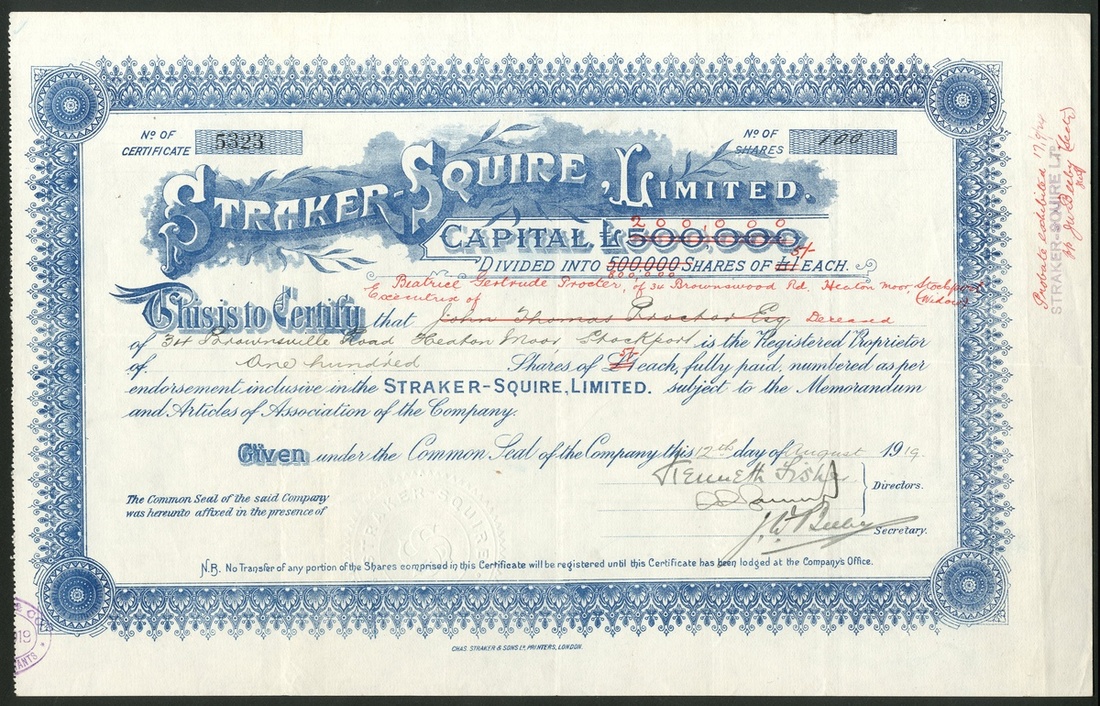 Nº OF CERTIFICATE 5323
Nº OF SHARES 100
STRAKER-SQUIRE, LIMITED.
2 0 0 0 0 0
CAPITAL £500,000
5/-
DIVIDED INTO 500,000 SHARES OF £1 EACH.
800,000
Beatrice Gertrude Procter, of 34 Brownswood Rd, Heaton Moor, Stockport
Executrix of (Widow)
This is to Certify that John Thomas Procter Esq Deceased
of 34 Brownsville Road Heaton Moor Stockport is the Registered Proprietor
of One hundred Shares of £1 5/- each, fully paid, numbered as per
endorsement inclusive in the STRAKER-SQUIRE, LIMITED. subject to the Memorandum
and Articles of Association of the Company.
Given under the Common Seal of the Company this 12th day of August 1919.
Kenneth Fisher
Directors.
The Common Seal of the said Company
was hereunto affixed in the presence of
J. W. Beeby
Secretary.
STRAKER-SQUIRE
N.B. No Transfer of any portion of the Shares comprised in this Certificate will be registered until this Certificate has been lodged at the Company's Office.
CHAS. STRAKER & SONS Lᵀᴰ, PRINTERS, LONDON.
Probate exhibited
STRAKER-SQUIRE LT
p/p J W Beeby Secty